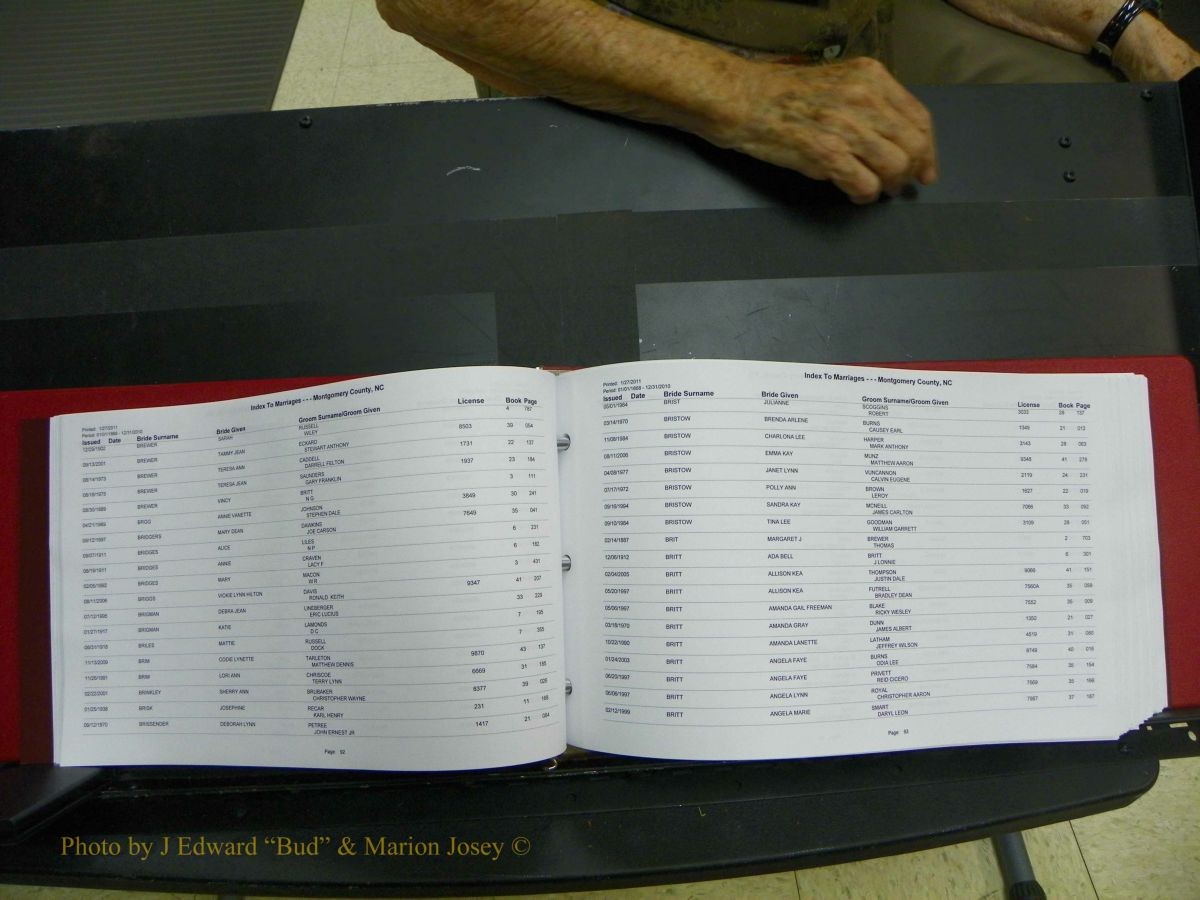 Index To Marriages - - - Montgomery County, NC
Printed: 1/27/2011
Period: 01/01/1868 - 12/31/2010
Issued Date Bride Surname Bride Given Groom Surname/Groom Given License Book Page
12/29/1902 BREWER SARAH RUSSELL 4 787
WILEY
09/13/2001 BREWER TAMMY JEAN ECKARD 8503 39 054
STEWART ANTHONY
08/14/1973 BREWER TERESA ANN CADDELL 1731 22 137
DARRELL FELTON
BREWER TERESA JEAN SAUNDERS 1937 23 184
GARY FRANKLIN
BREWER VINCY BRITT 3 111
N G
04/21/1989 BRIGG ANNIE VANETTE JOHNSON 3849 30 241
STEPHEN DALE
09/12/1997 BRIDGERS MARY DEAN DAWKINS 7649 35 041
JOE CARSON
09/07/1911 BRIDGES ALICE LILES 6 231
N P
08/19/1911 BRIDGES ANNIE CRAVEN 6 182
LACY F
BRIDGES MARY MACON 3 431
W R
08/11/2006 BRIGGS VICKIE LYNN HILTON DAVIS 9347 41 207
RONALD KEITH
07/12/1995 BRIGMAN DEBRA JEAN LINEBERGER 33 229
ERIC LUCIUS
01/27/1917 BRIGMAN KATIE LAMONDS 7 195
D C
08/31/1918 BRILES MATTIE RUSSELL 7 355
DOCK
11/13/2009 BRIM CODIE LYNETTE TARLETON 9870 43 137
MATTHEW DENNIS
11/26/1991 BRIM LORI ANN CHRISCOE 6669 31 185
TERRY LYNN
02/22/2001 BRINKLEY SHERRY ANN BRUBAKER 8377 39 026
CHRISTOPHER WAYNE
01/25/1938 BRISK JOSEPHINE RECAR 231 11 168
KARL HENRY
09/12/1970 BRISSENDER DEBORAH LYNN PETREE 1417 21 084
JOHN ERNEST JR
Page 92
Index To Marriages - - - Montgomery County, NC
Printed: 1/27/2011
Period: 01/01/1868 - 12/31/2010
Issued Date Bride Surname Bride Given Groom Surname/Groom Given License Book Page
05/01/1984 BRIST JULIANNE SCOGGINS 3033 28 137
ROBERT
03/14/1970 BRISTOW BRENDA ARLENE BURNS 1349 21 012
CAUSEY EARL
11/08/1984 BRISTOW CHARLONA LEE HARPER 2143 28 063
MARK ANTHONY
08/11/2006 BRISTOW EMMA KAY MUNZ 9348 41 279
MATTHEW AARON
04/08/1977 BRISTOW JANET LYNN VUNCANNON 2119 24 231
CALVIN EUGENE
07/17/1972 BRISTOW POLLY ANN BROWN 1627 22 019
LEROY
09/16/1994 BRISTOW SANDRA KAY MCNEILL 7066 33 092
JAMES CARLTON
09/10/1984 BRISTOW TINA LEE GOODMAN 3109 28 051
WILLIAM GARRETT
02/14/1887 BRIT MARGARET J BREWER 2 703
THOMAS
12/06/1912 BRITT ADA BELL BRITT 6 301
J LONNIE
02/04/2005 BRITT ALLISON KEA THOMPSON 9066 41 151
JUSTIN DALE
05/20/1997 BRITT ALLISON KEA FUTRELL 7560A 35 089
BRADLEY DEAN
05/06/1997 BRITT AMANDA GAIL FREEMAN BLAKE 7552 35 009
RICKY WESLEY
03/18/1970 BRITT AMANDA GRAY DUNN 1350 21 027
JAMES ALBERT
10/22/1990 BRITT AMANDA LANETTE LATHAM 4519 31 060
JEFFREY WILSON
01/24/2003 BRITT ANGELA FAYE BURNS 8749 40 016
ODIA LEE
06/20/1997 BRITT ANGELA FAYE PRIVETT 7584 35 154
REID CICERO
06/06/1997 BRITT ANGELA LYNN ROYAL 7569 35 166
CHRISTOPHER AARON
02/12/1999 BRITT ANGELA MARIE SMART 7957 37 187
DARYL LEON
Page 93
Photo by J Edward “Bud” & Marion Josey ©